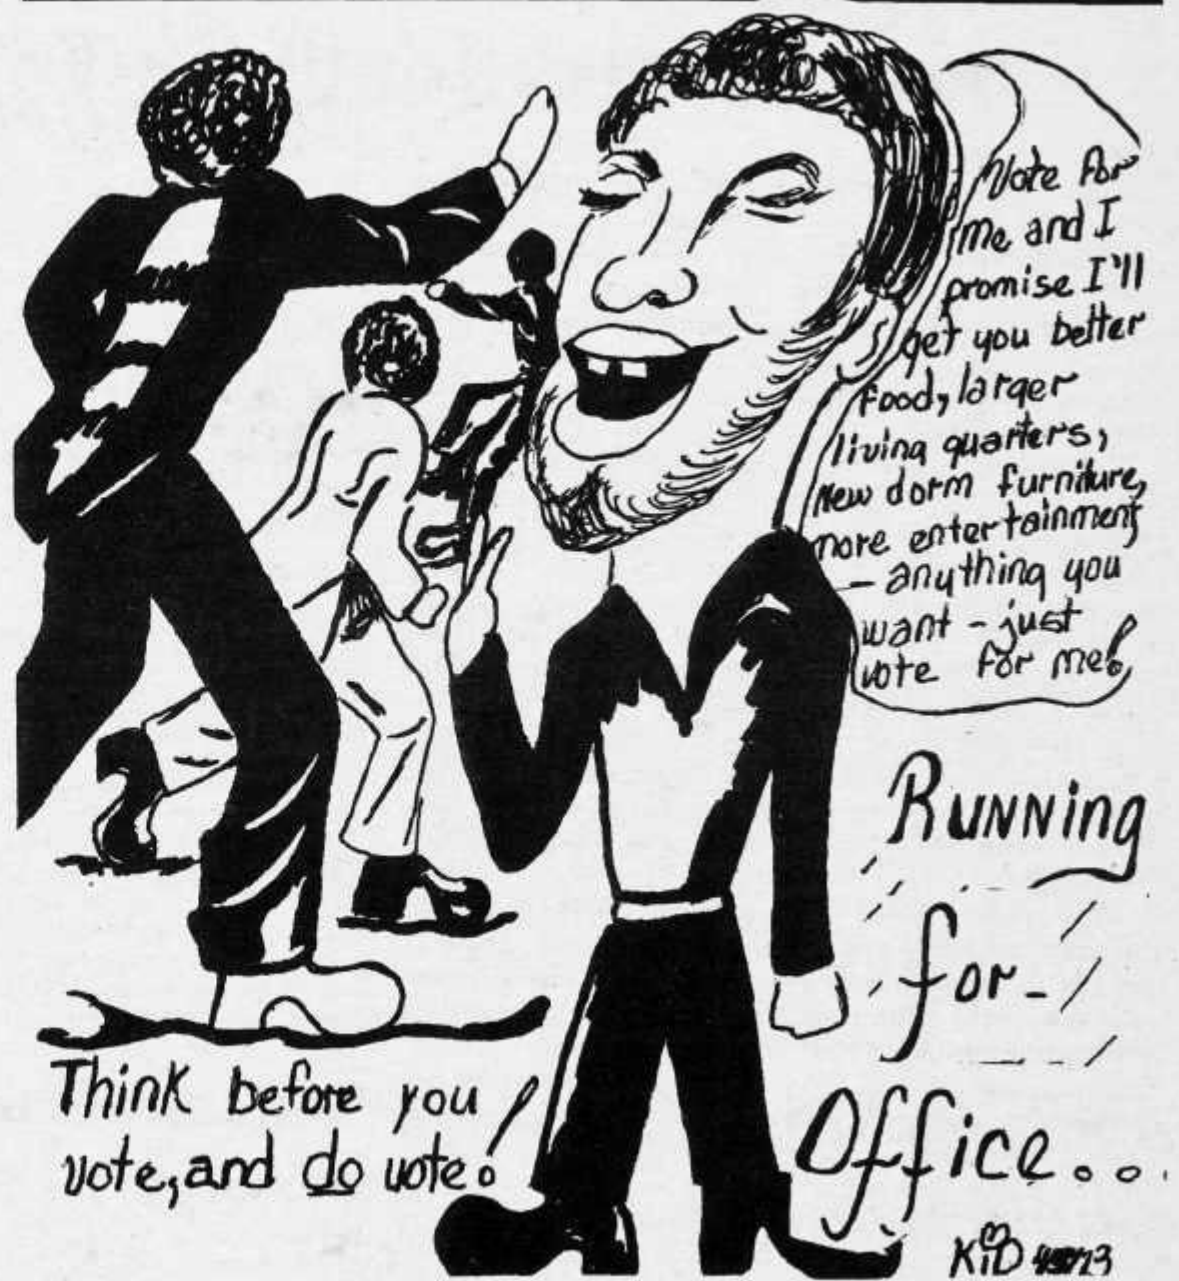 Vote for
me and I
promise I'll
get you better
food, larger
living quarters,
new dorm furniture,
more entertainment
- anything you
want - just
vote for me!
Running
for-
Office...
Think before you
vote, and do vote!
KiD